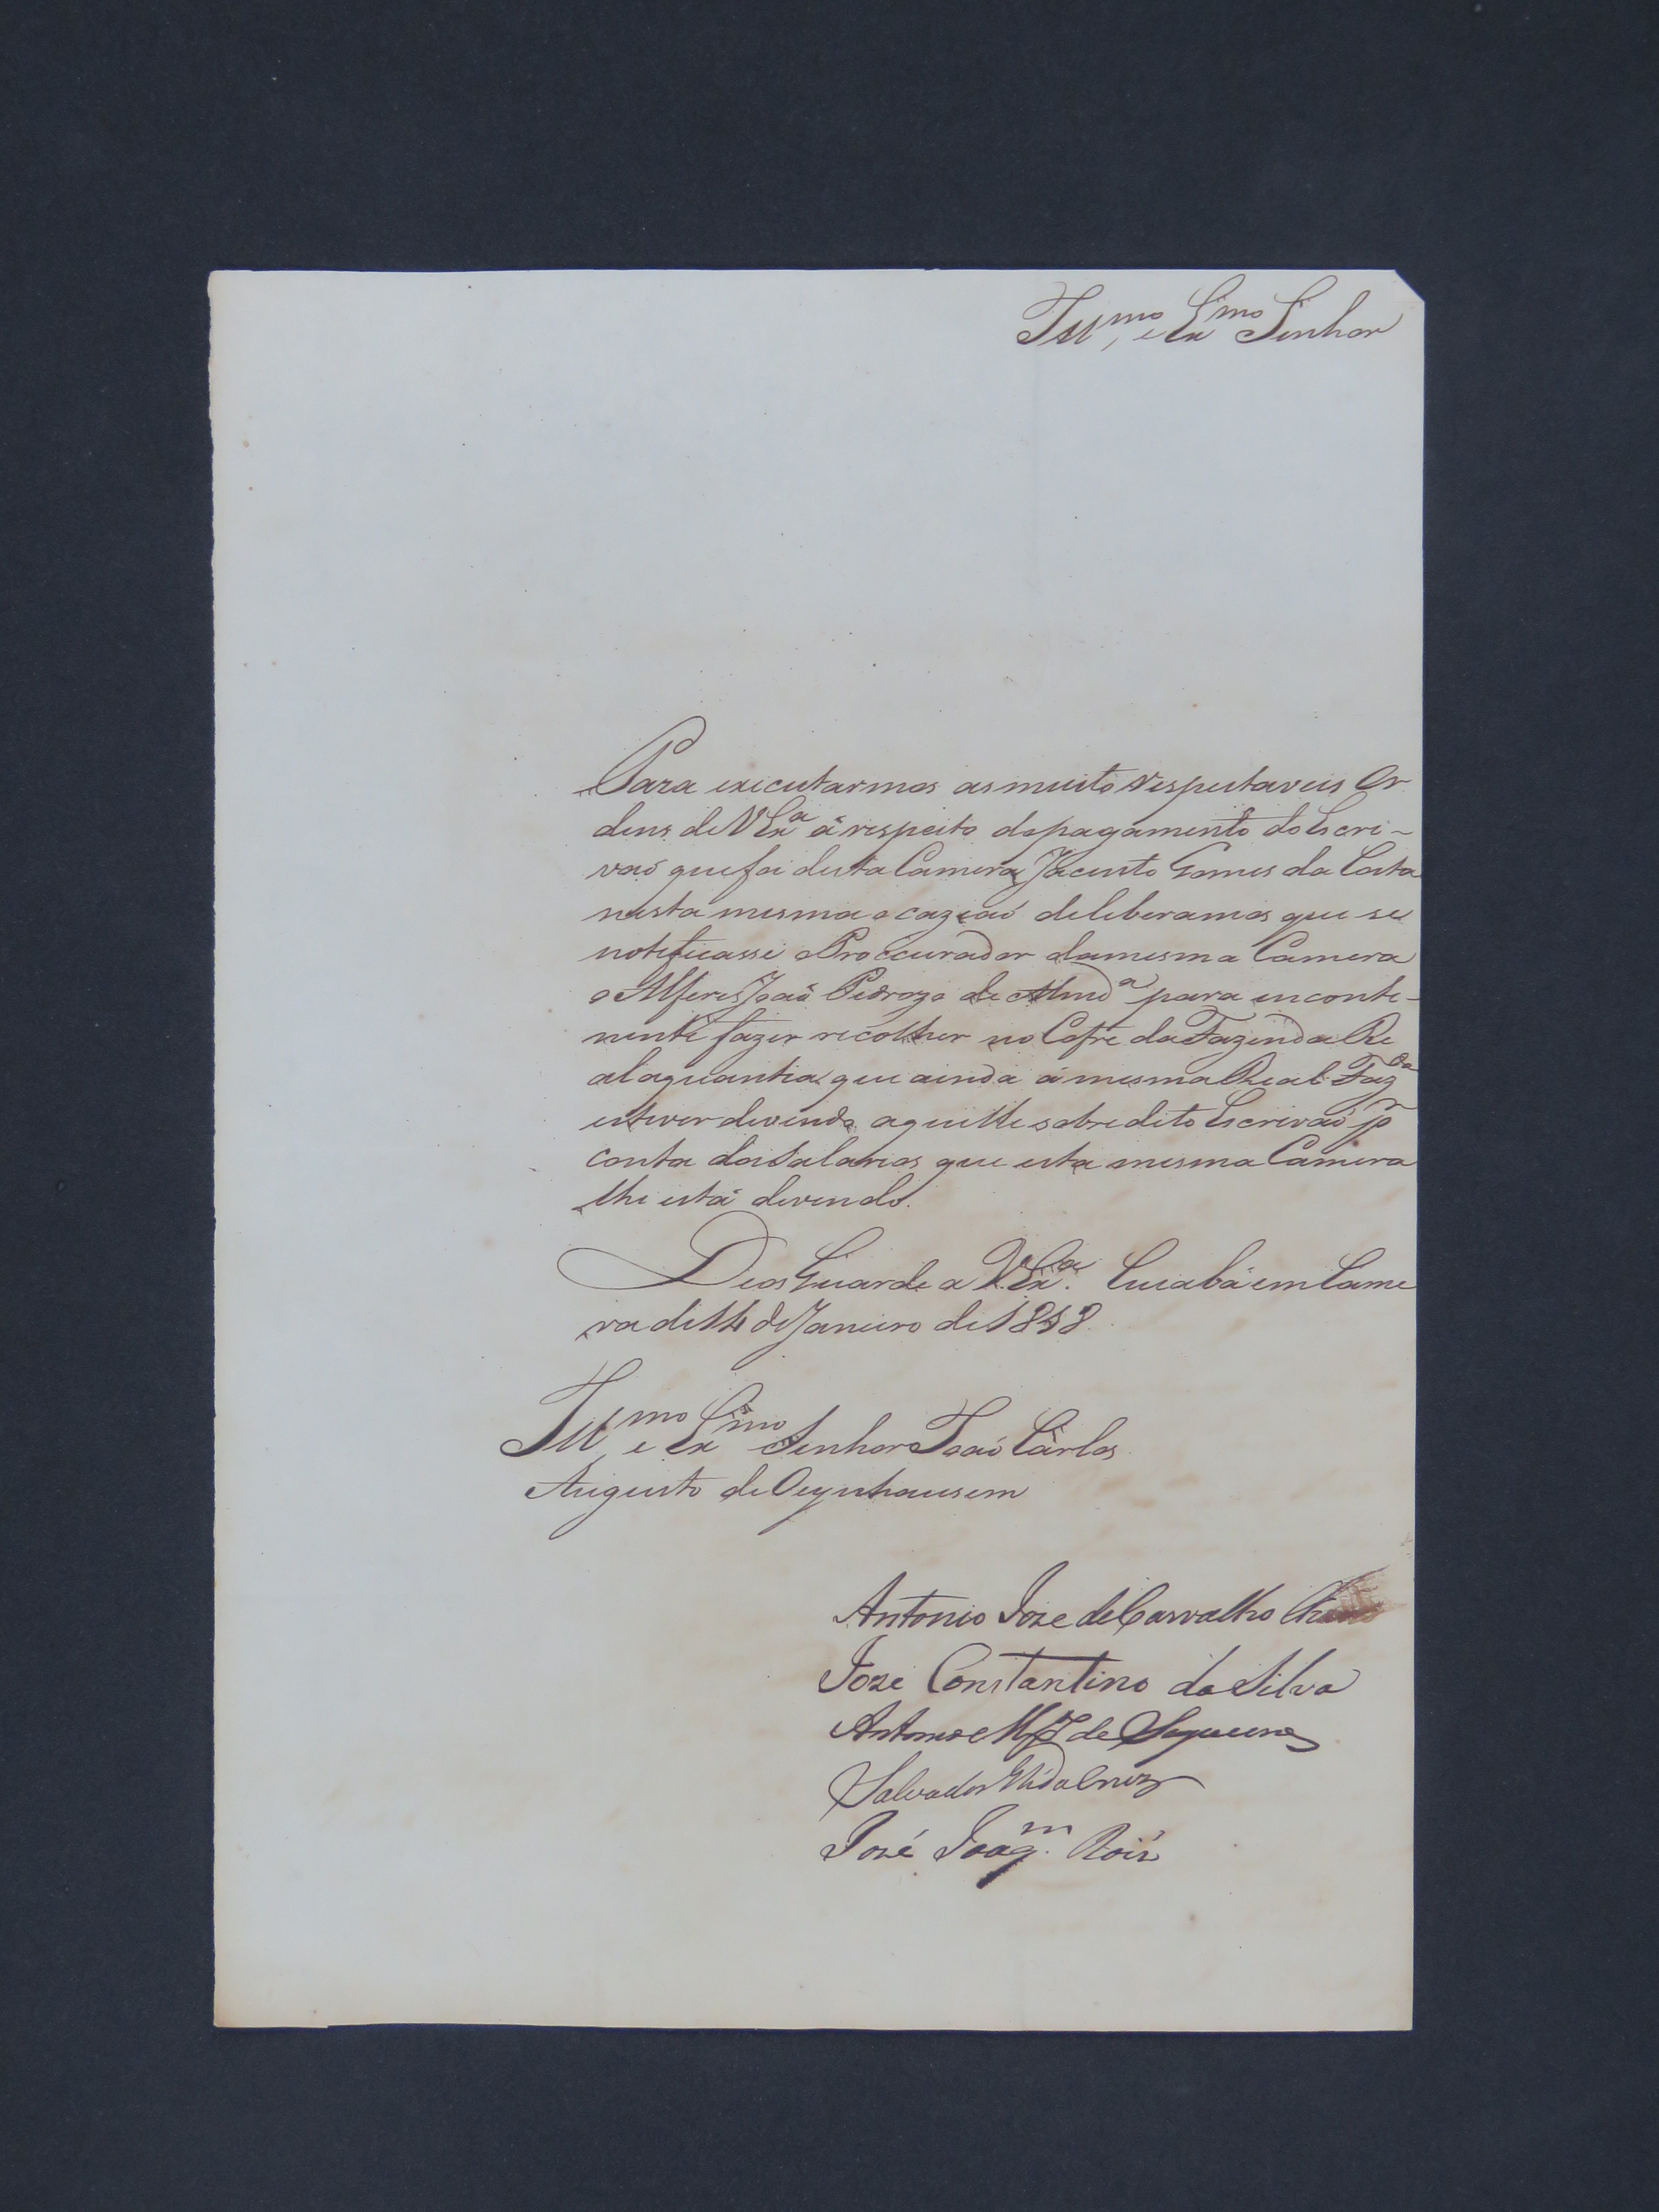 Ill.mo, e Ex.mo Senhor
Para executarmos as muito respeitaveis Or
dens de VEx.a á respeito do pagamento do Escri-
vaõ que foi desta Camera Jacinto Gomes da Costa
nesta mesma ocaziaõ deliberamos que se
notificasse o Proccurador da mesma Camera
o Alferes Joaõ Pedrozo de Almd.a para inconti-
nente fazer recolher no Cofre da Fazenda Re
al aquantia que ainda á mesma Real Faz.da
estiver devendo aquelle sobredito Escrivaõ p.r
conta dos Salarios que esta mesma Camera
lhe está devendo.
Deos Guarde a V.Ex.a. Cuiabá em Came
ra de 14 de Janeiro de 1818.
Ill.mo, e Ex.mo Senhor Joaõ Carlos
Augusto de Oeynhausem
Antonio Joze de Carvalho
Joze Constantino da Silva
Antonio de Sequeira
Salvador
José Joaq.m Roiz